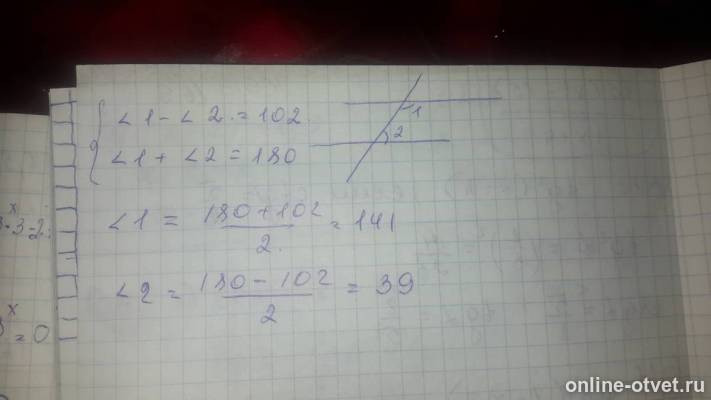 ∠1 - ∠2 = 102
∠1 + ∠2 = 180
1
2
∠1 = (180 + 102) / 2 = 141
∠2 = (180 - 102) / 2 = 39
x
x
= 0
online-otvet.ru